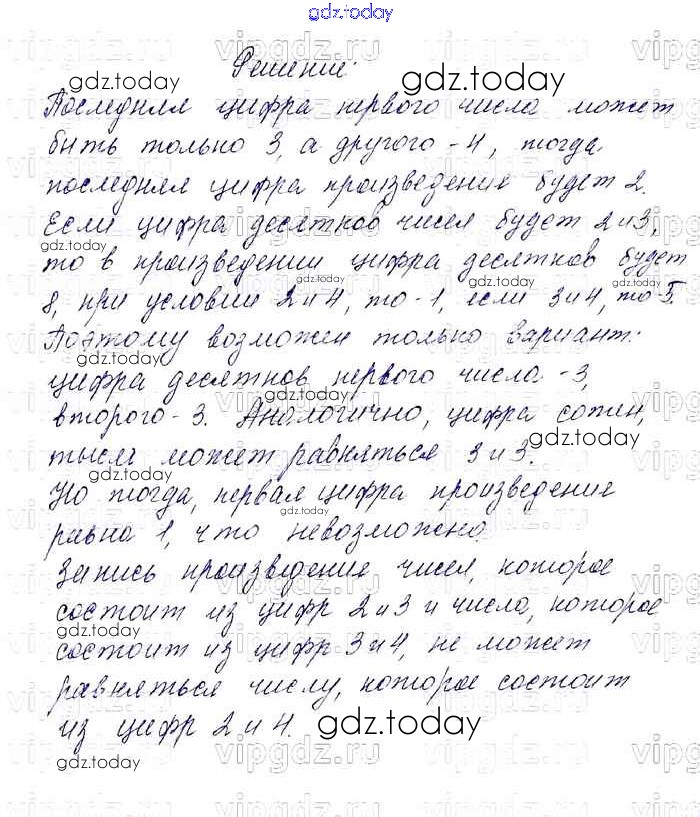 gdz.today
Решение:
Последняя цифра первого числа может
быть только 3, а другого - 4, тогда
последняя цифра произведения будет 2.
Если цифра десятков чисел будет 2 и 3,
то в произведении цифра десятков будет
8, при условии 2 и 4, то - 1, если 3 и 4, то 5.
Поэтому возможен только вариант:
цифра десятков первого числа - 3,
второго - 3. Аналогично, цифра сотен,
тысяч может равняться 3 и 3.
Но тогда, первая цифра произведения
равна 1, что невозможно.
Запись произведения чисел, которое
состоит из цифр 2 и 3 и числа, которое
состоит из цифр 3 и 4, не может
равняться числу, которое состоит
из цифр 2 и 4.
gdz.today
vipgdz.ru